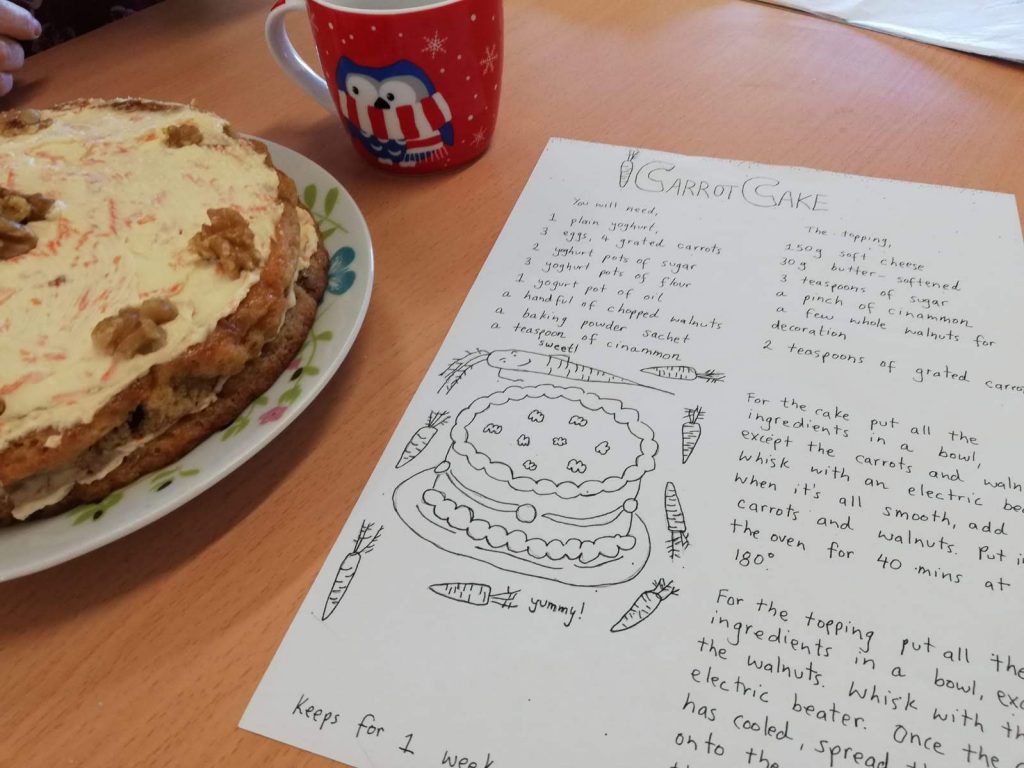 CARROT CAKE
You will need,
1 plain yoghurt,
3 eggs, 4 grated carrots
2 yoghurt pots of sugar
3 yoghurt pots of flour
1 yogurt pot of oil
a handful of chopped walnuts
a baking powder sachet
a teaspoon of cinammon
The topping,
150g soft cheese
30g butter - softened
3 teaspoons of sugar
a pinch of cinammon
a few whole walnuts for
decoration
2 teaspoons of grated
sweet!
yummy!
For the cake put all the
ingredients in a bowl,
except the carrots and
whisk with an electric
when it's all smooth, add
carrots and walnuts. Put
the oven for 40 mins at
180°
For the topping put all the
ingredients in a bowl,
the walnuts. Whisk with
electric beater. Once the
has cooled, spread
onto the
Keeps for 1 week